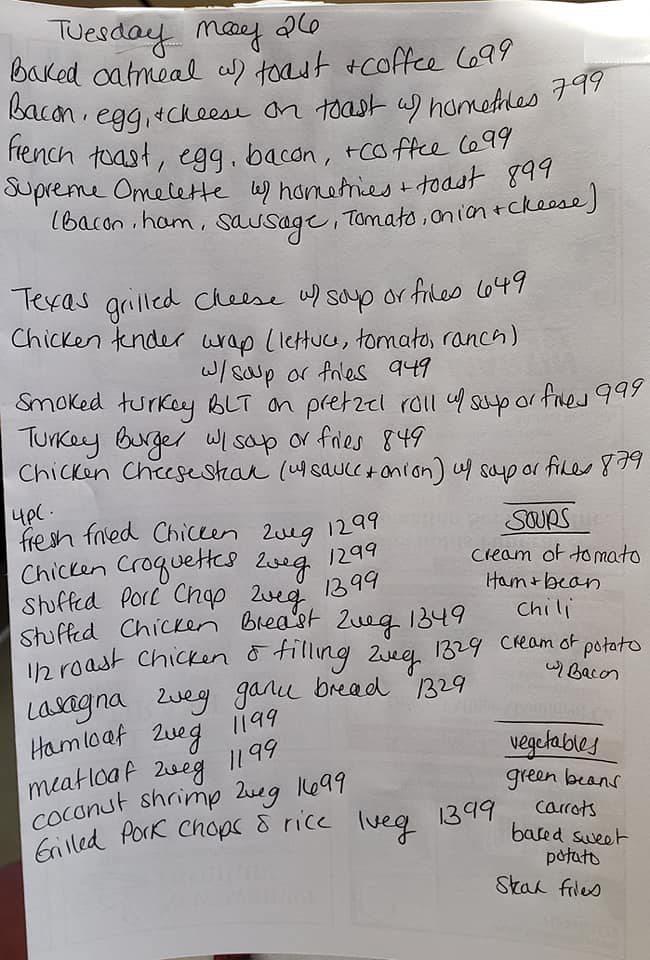 Tuesday May 26
Baked oatmeal w/ toast + coffee 699
Bacon, egg, + cheese on toast w/ homefries 799
French toast, egg, bacon, + coffee 699
Supreme Omelette w/ homefries + toast 899
(Bacon, ham, sausage, Tomato, onion + cheese)
Texas grilled cheese w/ soup or fries 649
Chicken tender wrap (lettuce, tomato, ranch)
w/ soup or fries 949
Smoked turkey BLT on pretzel roll w/ soup or fries 999
Turkey Burger w/ soup or fries 849
Chicken Cheesesteak (w/ sauce + onion) w/ soup or fries 879
4pc.
fresh fried Chicken 2veg 1299
Chicken Croquettes 2veg 1299
Stuffed Pork Chop 2veg 1399
Stuffed Chicken Breast 2veg 1349
1/2 roast Chicken & filling 2veg 1329
Lasagna 2veg garlic bread 1329
Hamloaf 2veg 1199
meatloaf 2veg 1199
coconut shrimp 2veg 1699
Grilled Pork Chops & rice 1veg 1399
Soups
cream of tomato
Ham + bean
Chili
cream of potato
w/ Bacon
vegetables
green beans
carrots
baked sweet
potato
Steak fries